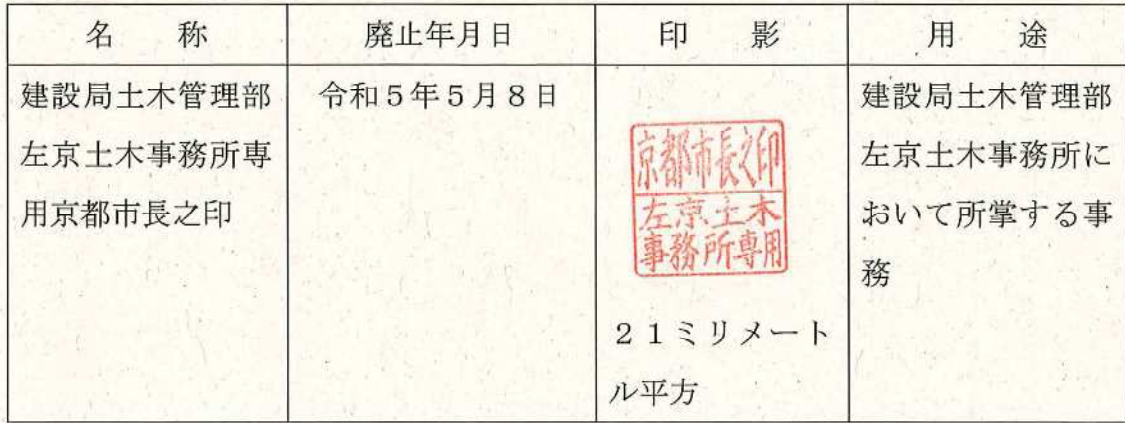 名　称
廃止年月日
印　影
用　途
建設局土木管理部
左京土木事務所専
用京都市長之印
令和５年５月８日
京都市長之印
左京土木
事務所専用
２１ミリメート
ル平方
建設局土木管理部
左京土木事務所に
おいて所掌する事
務